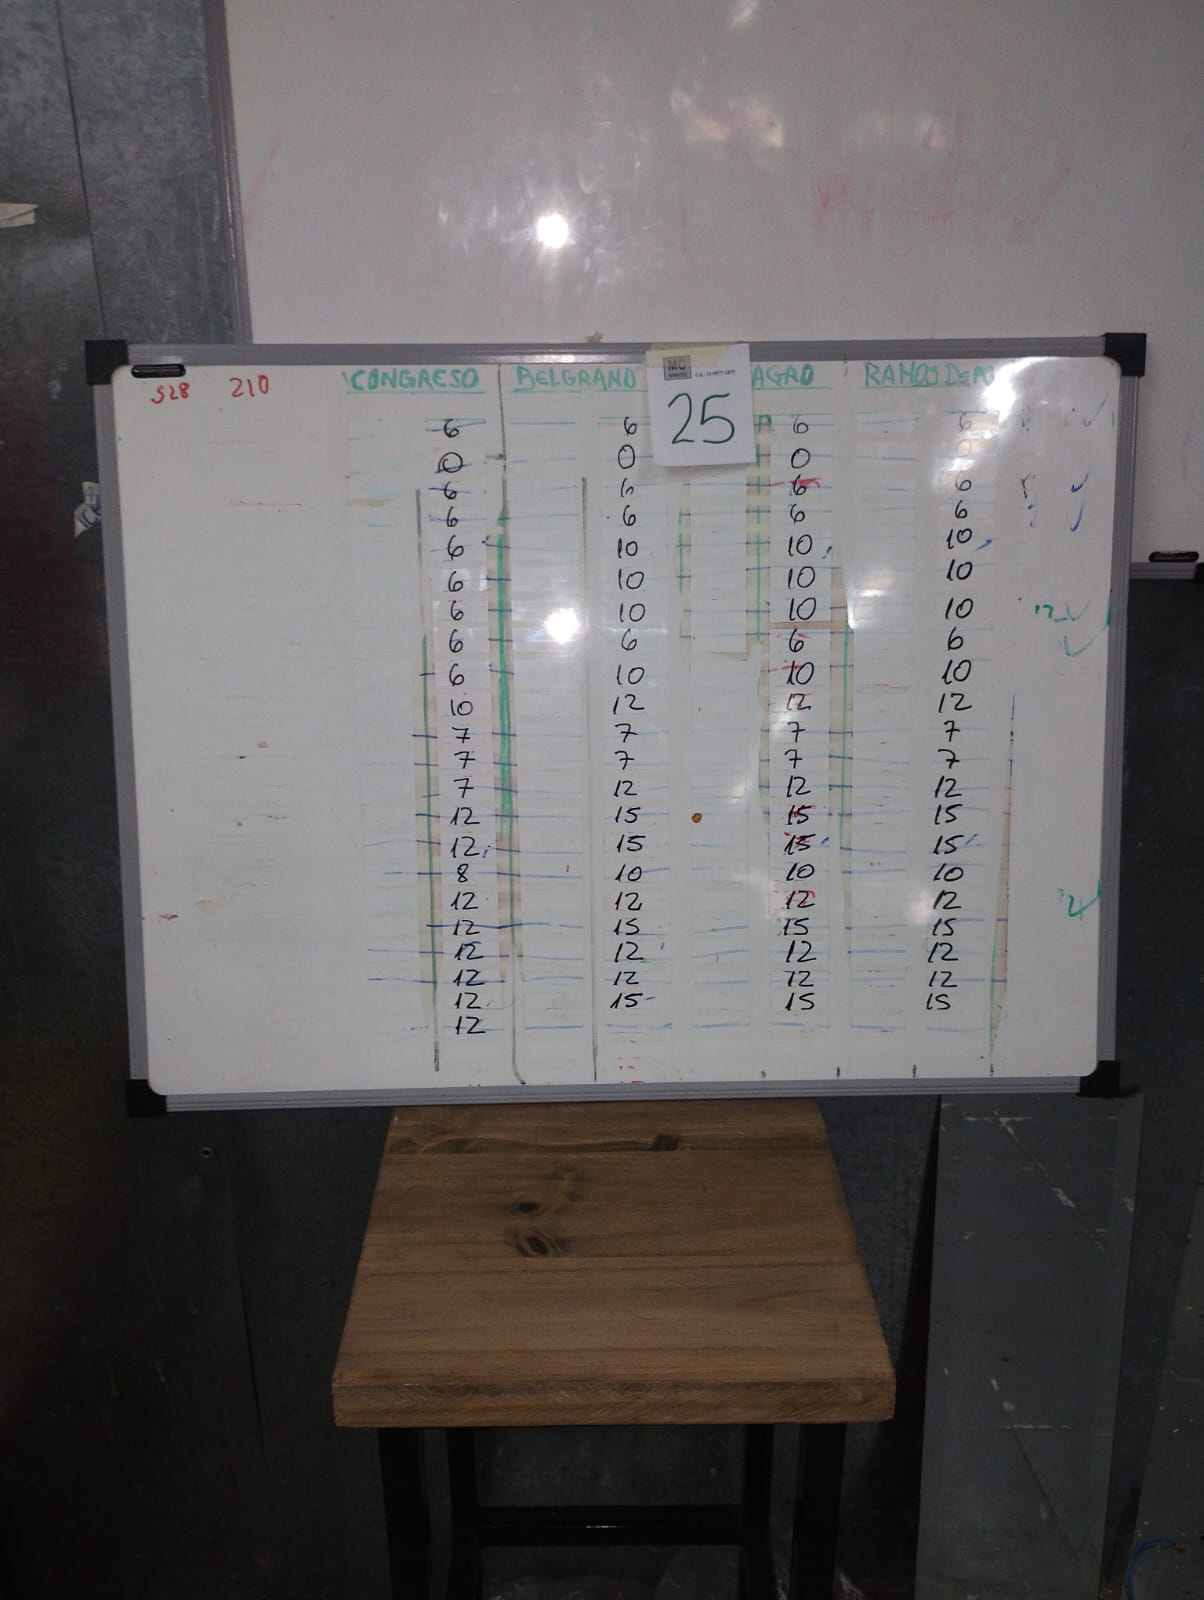 528 210 CONGRESO BELGRANO AGRO RAMOS DE
MC
25
6 6 6 6
0 0 0 0
6 6 6 6
6 6 6 6
6 10 10 10
6 10 10 10
6 10 10 10
6 6 6 6
6 10 10 10
10 12 12 12
7 7 7 7
7 7 7 7
7 12 12 12
12 15 15 15
12 15 15 15
8 10 10 10
12 12 12 12
12 15 15 15
12 12 12 12
12 12 12 12
12 15 15 15
12